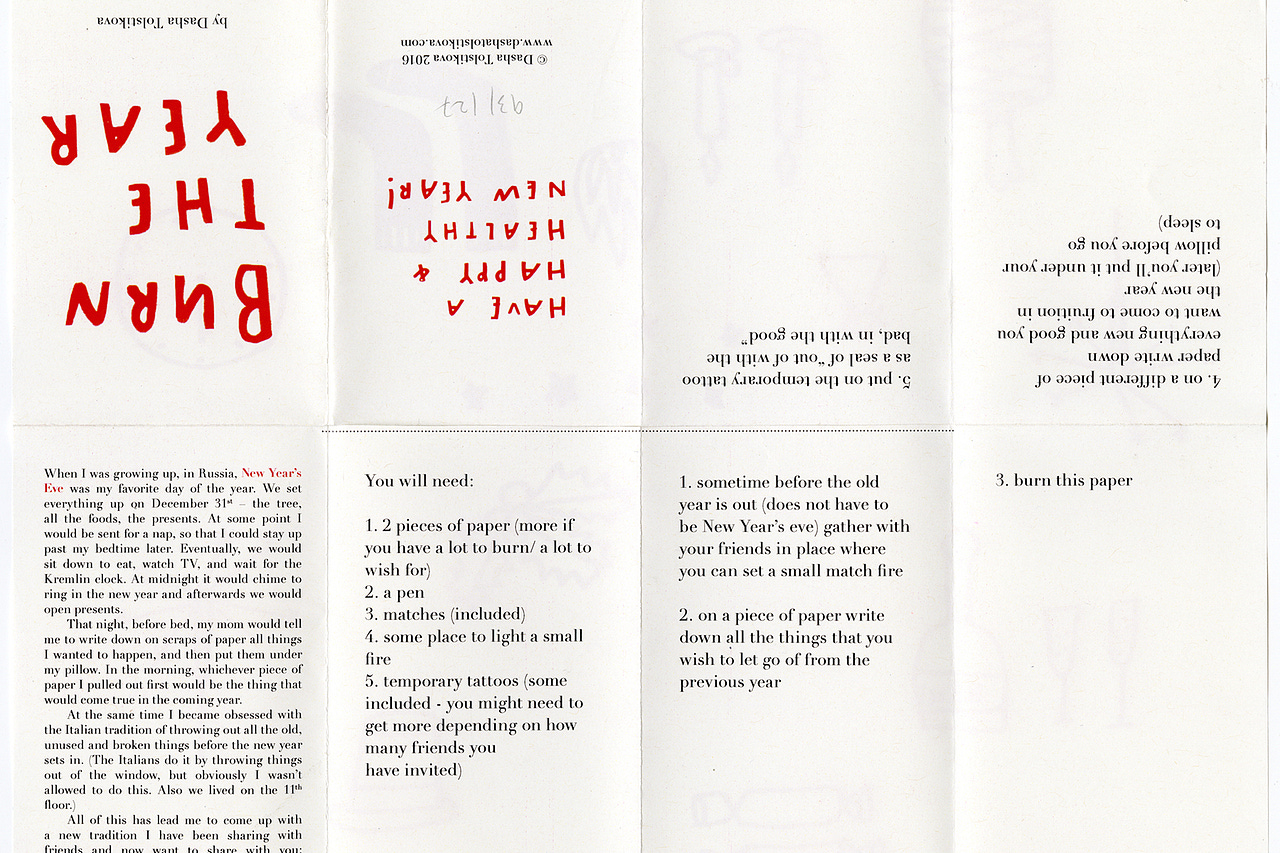 BURN
THE
YEAR
by Dasha Tolstikova
When I was growing up, in Russia, New Year's
Eve was my favorite day of the year. We set
everything up on December 31st – the tree,
all the foods, the presents. At some point I
would be sent for a nap, so that I could stay up
past my bedtime later. Eventually, we would
sit down to eat, watch TV, and wait for the
Kremlin clock. At midnight it would chime to
ring in the new year and afterwards we would
open presents.
That night, before bed, my mom would tell
me to write down on scraps of paper all things
I wanted to happen, and then put them under
my pillow. In the morning, whichever piece of
paper I pulled out first would be the thing that
would come true in the coming year.
At the same time I became obsessed with
the Italian tradition of throwing out all the old,
unused and broken things before the new year
sets in. (The Italians do it by throwing things
out of the window, but obviously I wasn't
allowed to do this. Also we lived on the 11th
floor.)
All of this has lead me to come up with
a new tradition I have been sharing with
friends and now want to share with you:
You will need:
1. 2 pieces of paper (more if
you have a lot to burn/ a lot to
wish for)
2. a pen
3. matches (included)
4. some place to light a small
fire
5. temporary tattoos (some
included - you might need to
get more depending on how
many friends you
have invited)
1. sometime before the old
year is out (does not have to
be New Year's eve) gather with
your friends in place where
you can set a small match fire
2. on a piece of paper write
down all the things that you
wish to let go of from the
previous year
3. burn this paper
4. on a different piece of
paper write down
everything new and good you
want to come to fruition in
the new year
(later you'll put it under your
pillow before you go
to sleep)
5. put on the temporary tattoo
as a seal of "out with the
bad, in with the good"
HAVE A
HAPPY &
HEALTHY
NEW YEAR!
© Dasha Tolstikova 2016
www.dashatolstikova.com